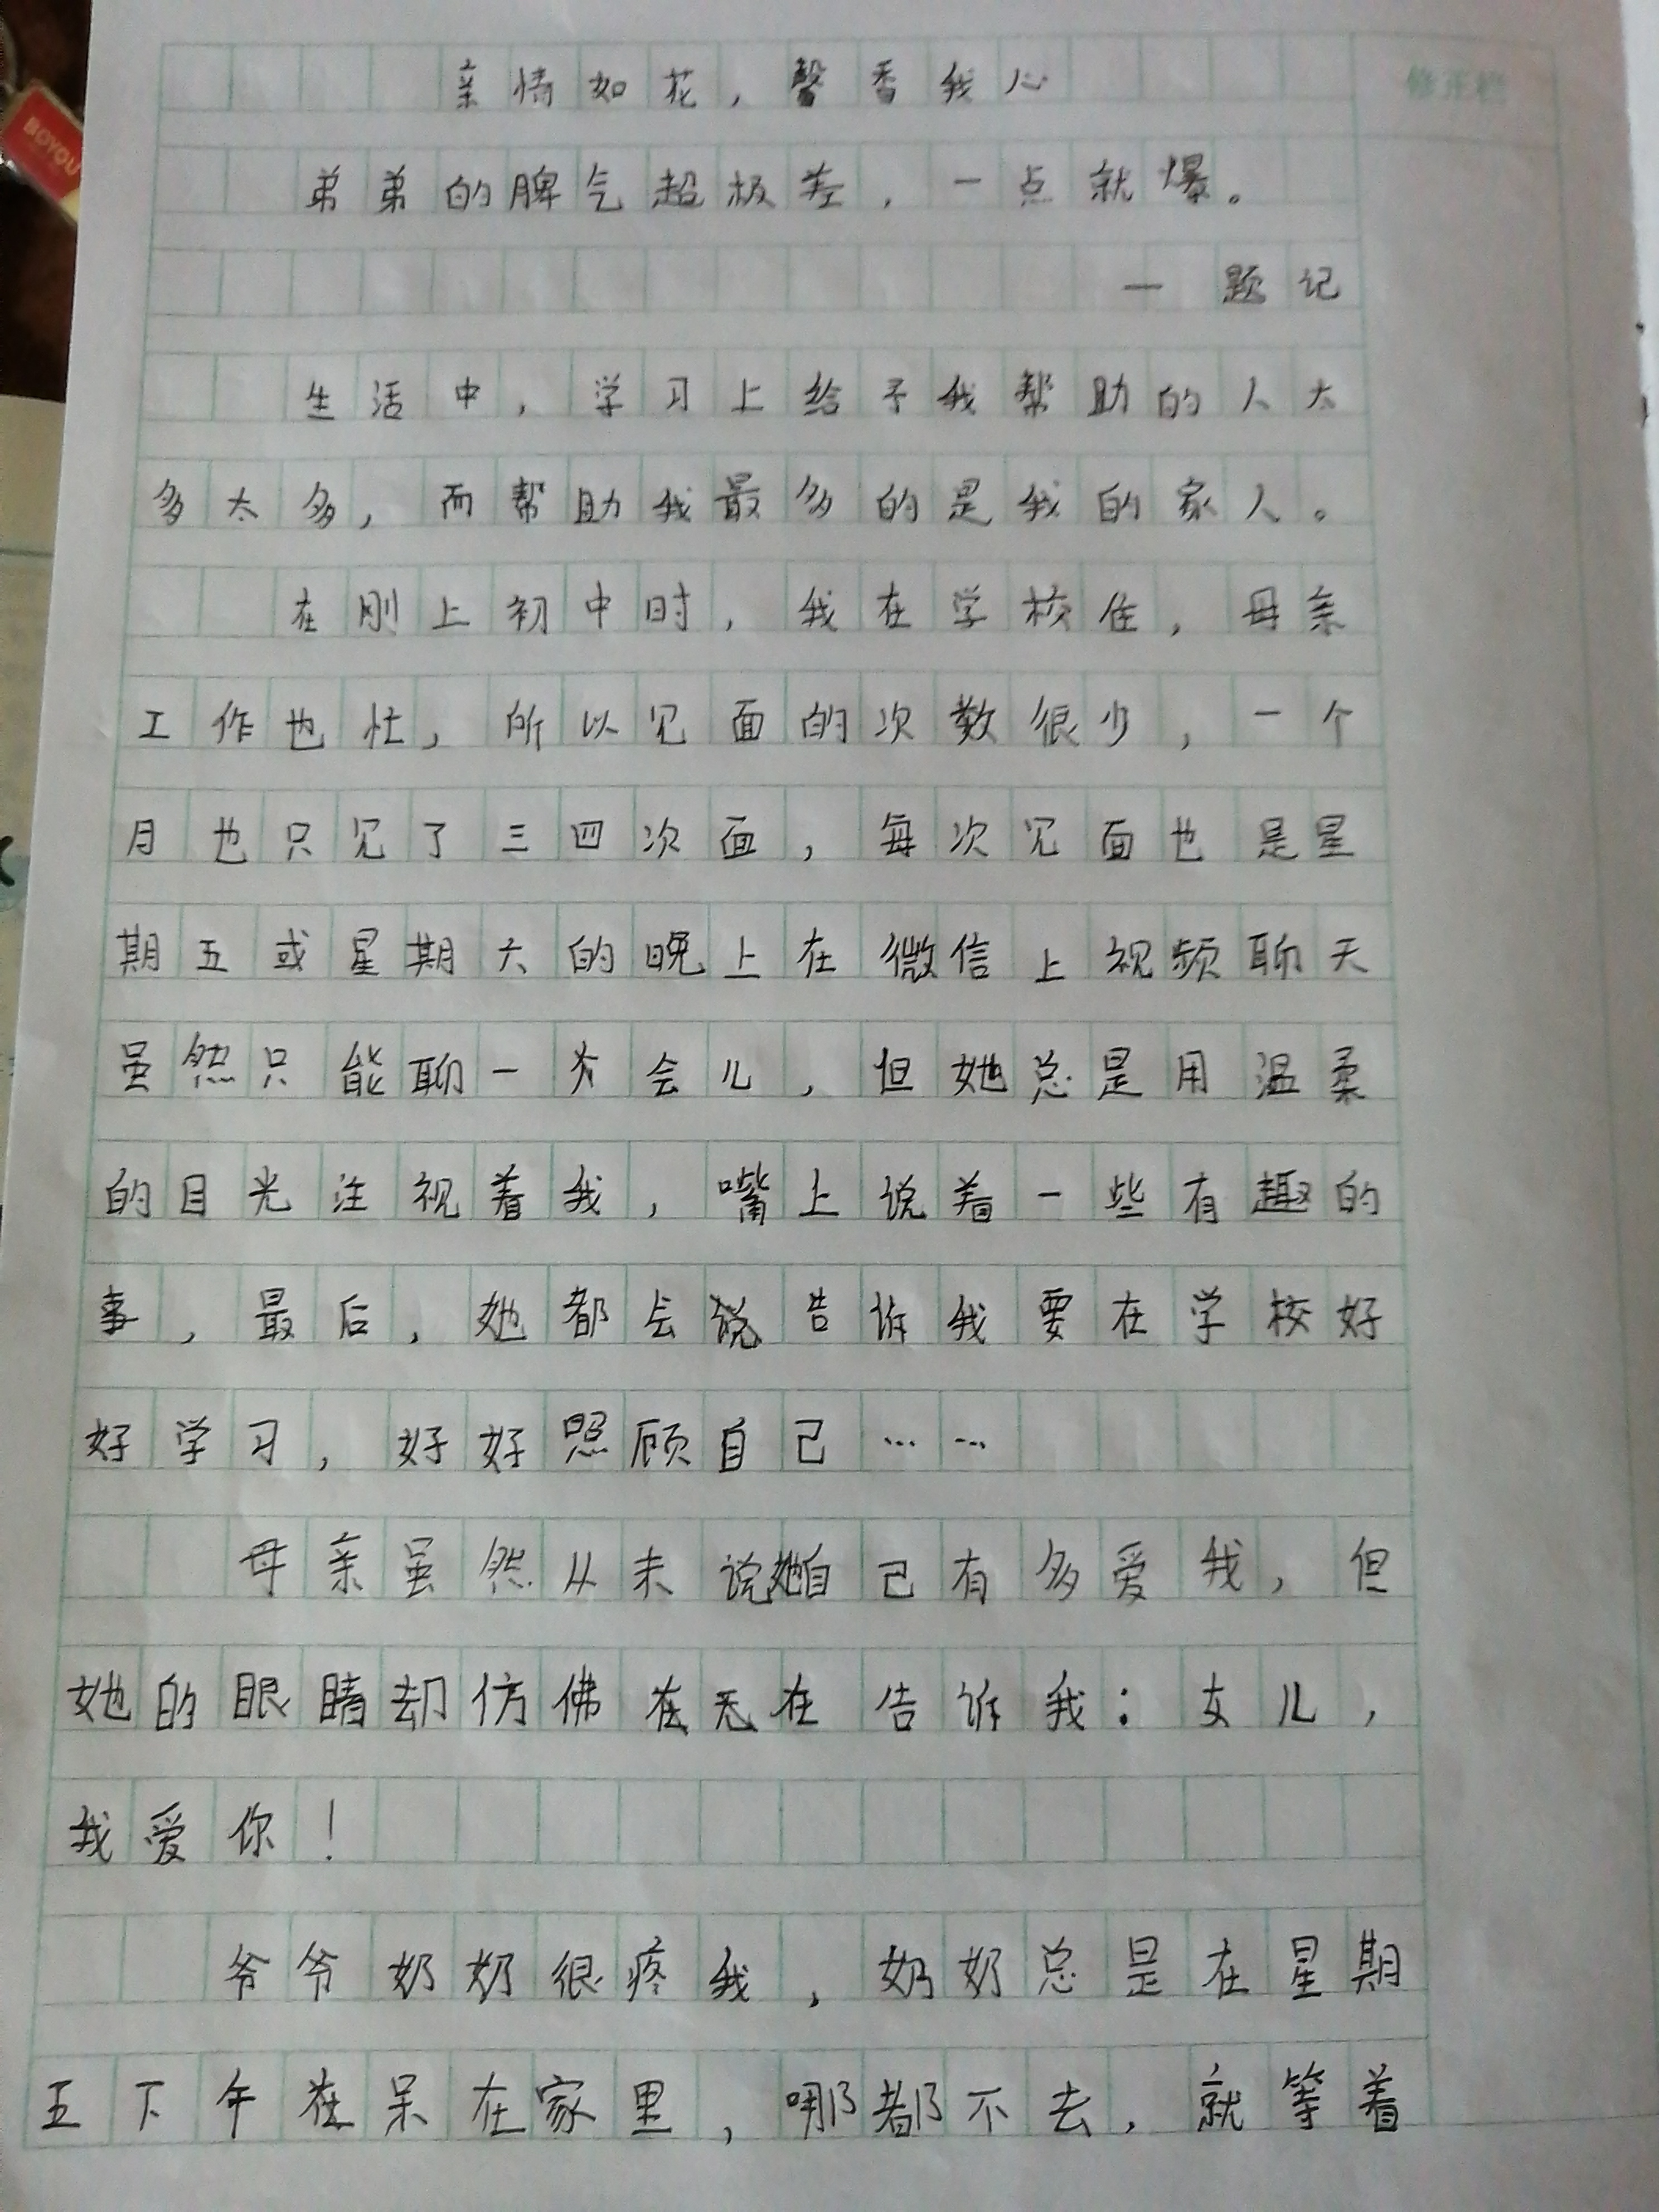 BOYOU
修正栏
亲情如花，馨香我心
弟弟的脾气超极差，一点就爆。
一题记
生活中，学习上给予我帮助的人太
多太多，而帮助我最多的是我的家人。
在刚上初中时，我在学校住，母亲
工作也忙，所以见面的次数很少，一个
月也只见了三四次面，每次见面也是星
期五或星期六的晚上在微信上视频聊天
虽然只能聊一会儿，但她总是用温柔
的目光注视着我，嘴上说着一些有趣的
事，最后，她都会说告诉我要在学校好
好学习，好好照顾自己……
母亲虽然从未说她自己有多爱我，但
她的眼睛却仿佛在无在告诉我：女儿，
我爱你！
爷爷奶奶很疼我，奶奶总是在星期
五下午在呆在家里，哪都不去，就等着